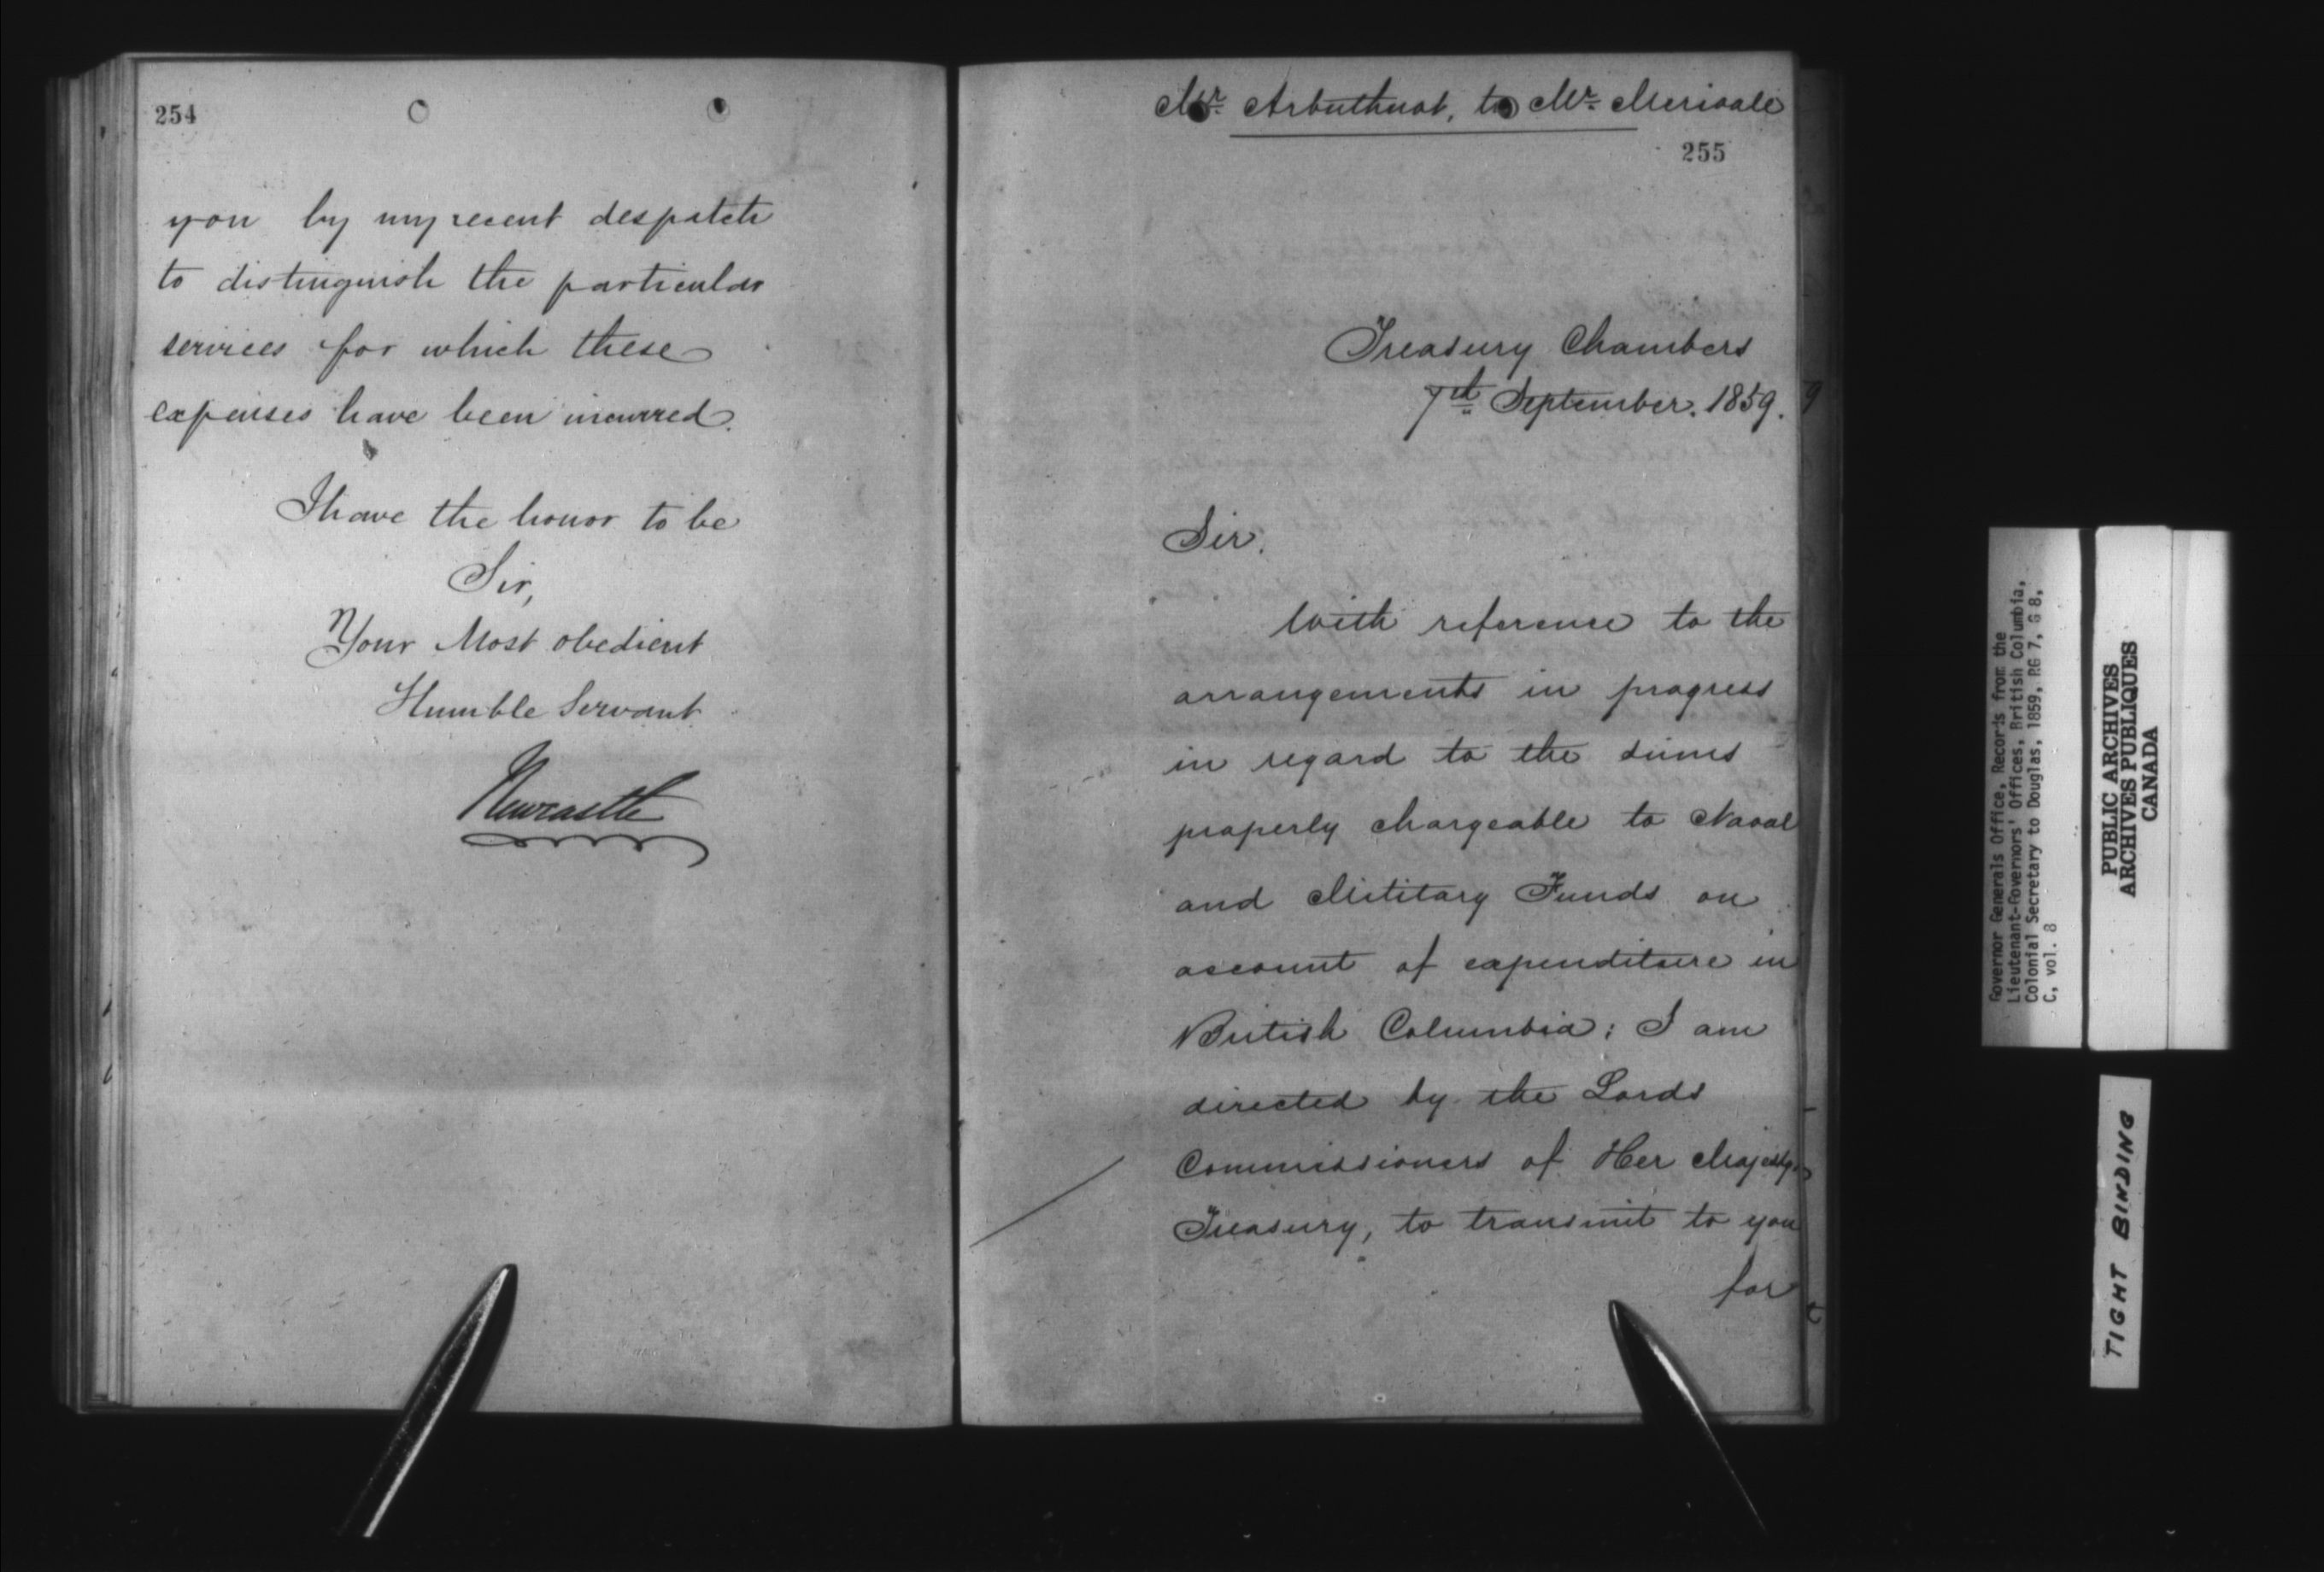 254
you by my recent despatch
to distinguish the particular
services for which these
expenses have been incurred.
I have the honor to be
Sir,
Your Most obedient
Humble Servant
Newcastle
Mr. Arbuthnot, to Mr. Merivale
255
Treasury Chambers
7th September. 1859.
Sir.
With reference to the
arrangements in progress
in regard to the sums
properly chargeable to Naval
and Military Funds on
account of expenditure in
British Columbia; I am
directed by the Lords
Commissioners of Her Majestys
Treasury, to transmit to you
for
Governor Generals Office, Records from the
Lieutenant-Governors' Offices, British Columbia,
Colonial Secretary to Douglas, 1859, RG 7, G 8,
C, vol. 8
PUBLIC ARCHIVES
ARCHIVES PUBLIQUES
CANADA
TIGHT BINDING